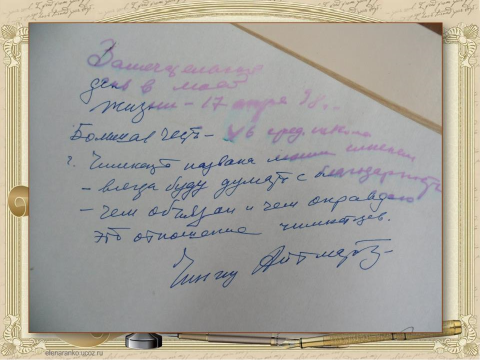 Замечательный
день в моей
жизни – 17 апр 98 г.
Большая честь – 46 сред. школа
г. Чимкента названа моим именем
– всегда буду думать с благодарностью
– чем обязан и чем оправдаю
это отношение чимкентцев.
Чингиз Айтматов
elenaranko.ucoz.ru